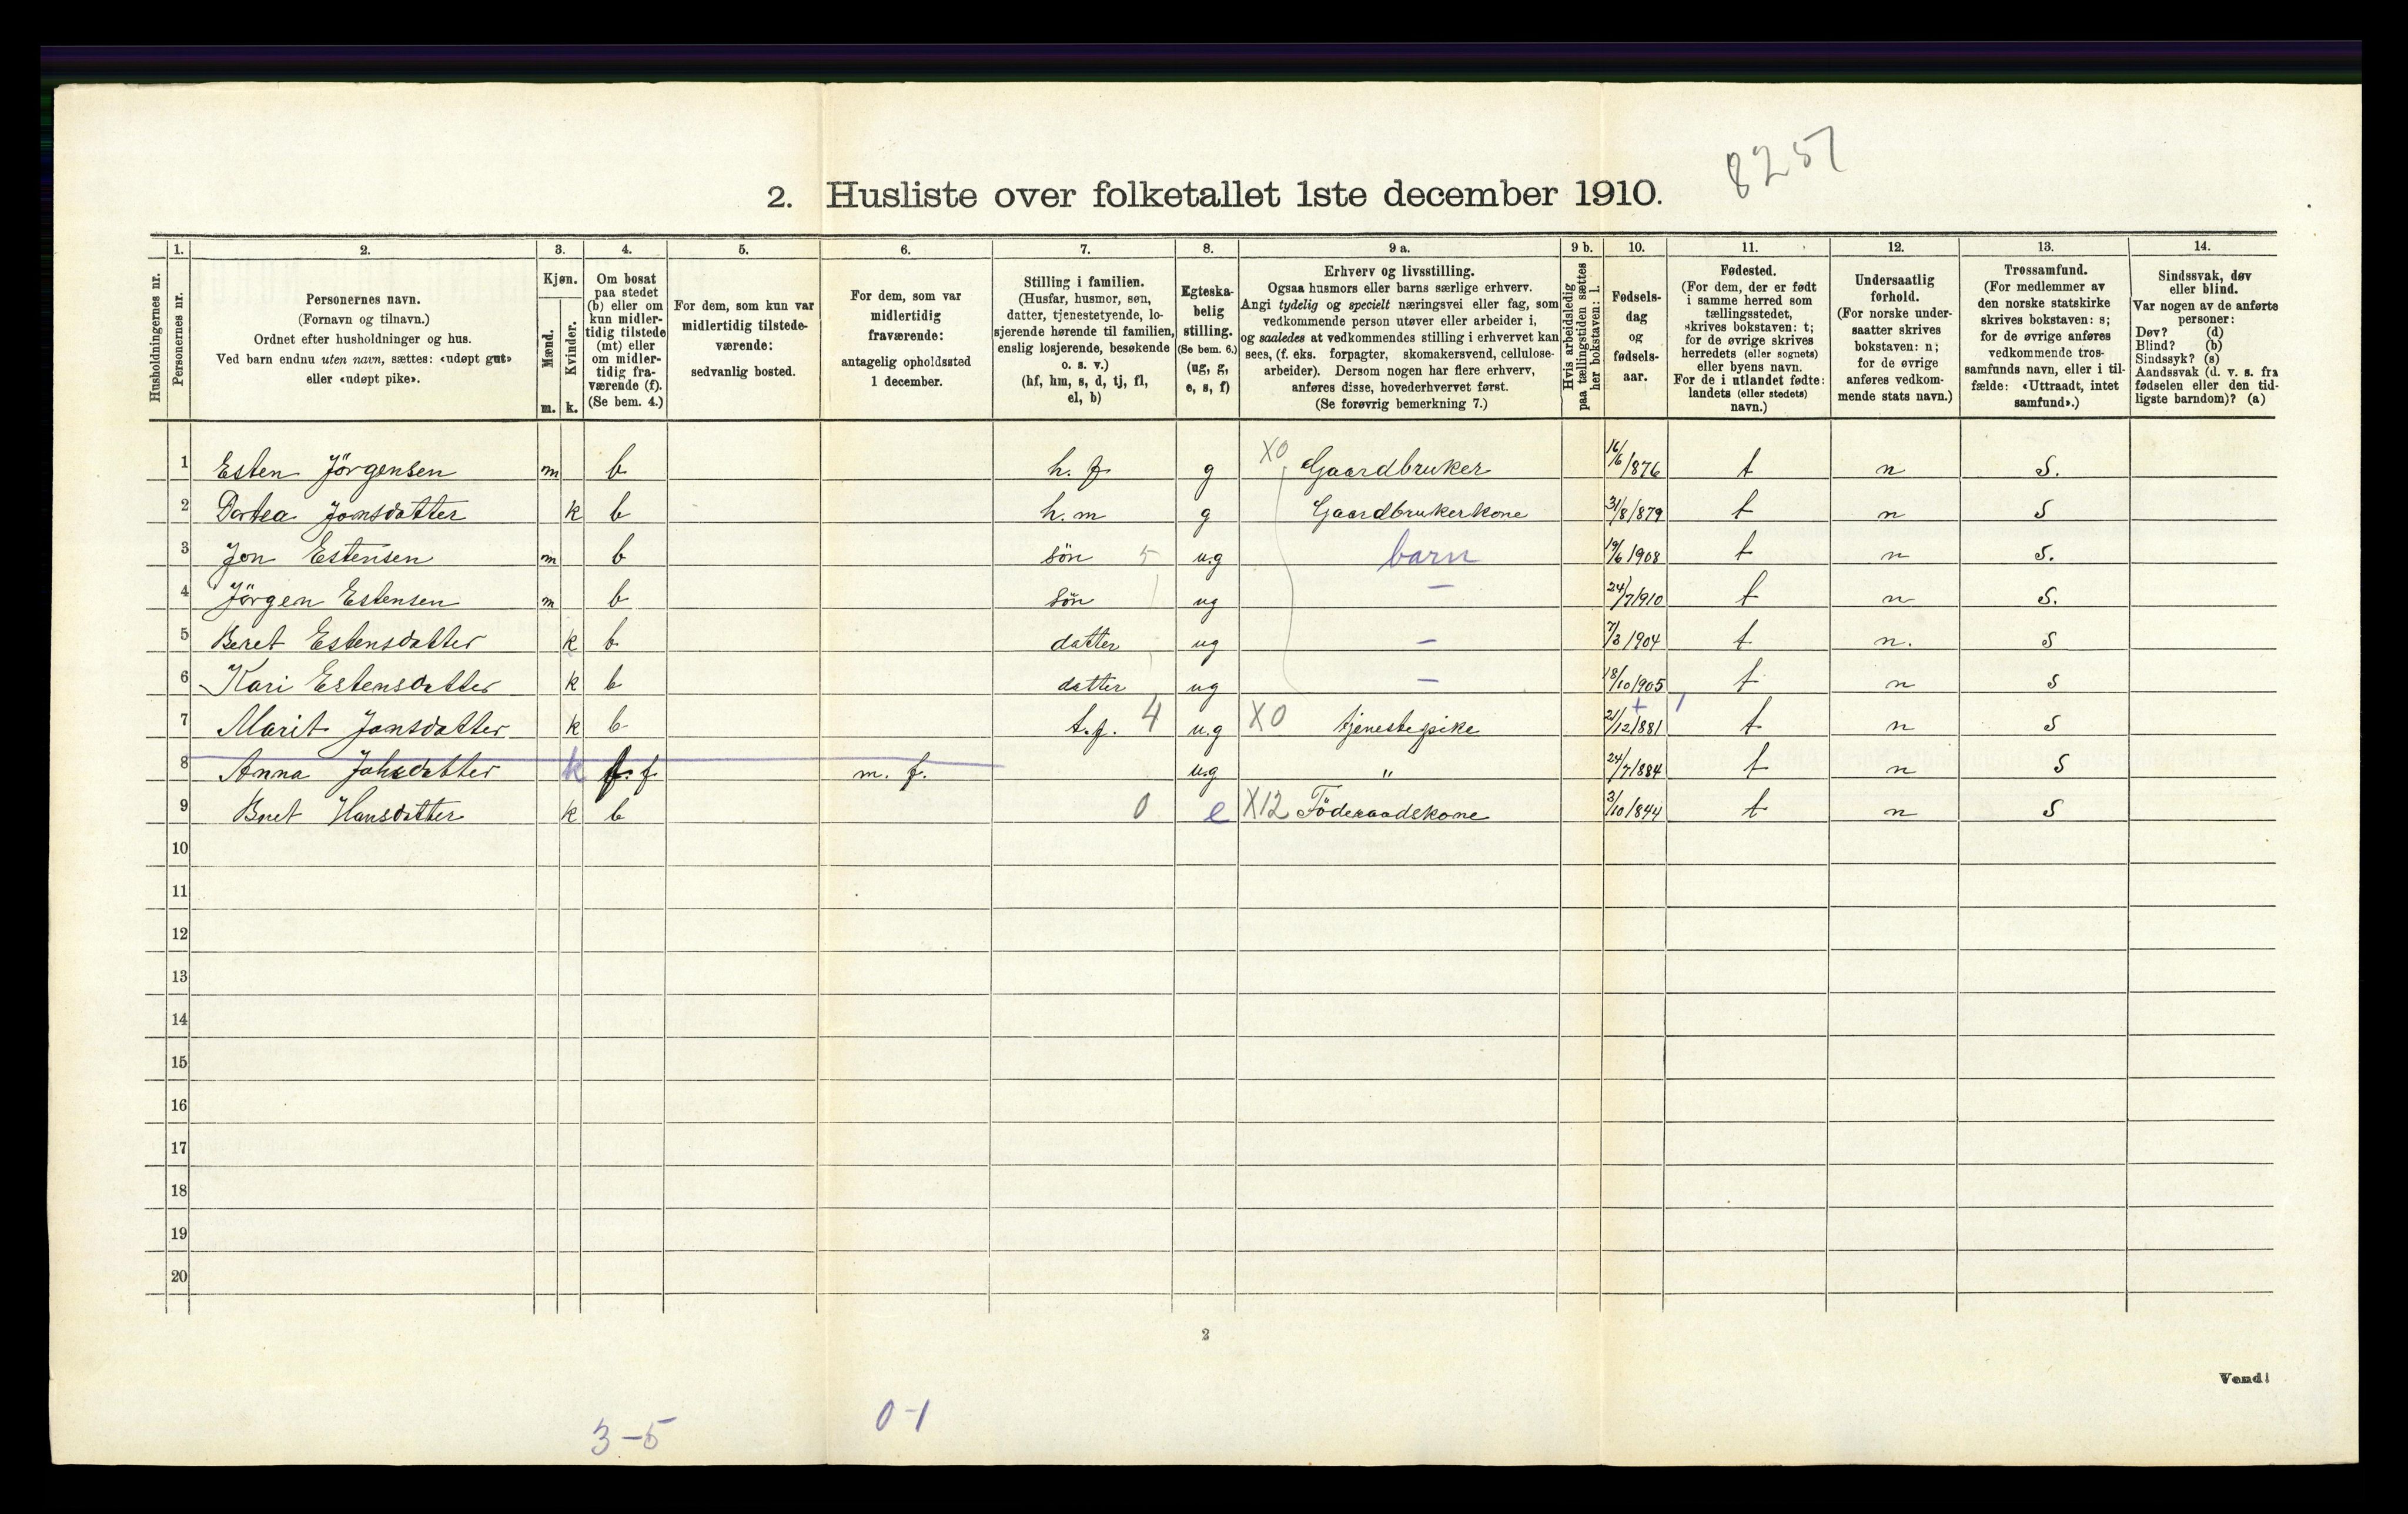 8257
2. Husliste over folketallet 1ste december 1910.
Husholdningernes nr.
1. Personernes nr.
2. Personernes navn.
(Fornavn og tilnavn.)
Ordnet efter husholdninger og hus.
Ved barn endnu uten navn, sættes: «udøpt gut»
eller «udøpt pike».
3. Kjøn.
Mænd. m.
Kvinder. k.
4. Om bosat
paa stedet
(b) eller om
kun midler-
tidig tilstede
(mt) eller
om midler-
tidig fra-
værende (f).
(Se bem. 4.)
5. For dem, som kun var
midlertidig tilstede-
værende:
sedvanlig bosted.
6. For dem, som var
midlertidig
fraværende:
antagelig opholdssted
1 december.
7. Stilling i familien.
(Husfar, husmor, søn,
datter, tjenestetyende, lo-
sjerende hørende til familien,
enslig losjerende, besøkende
o. s. v.)
(hf, hm, s, d, tj, fl,
el, b)
8. Egteska-
belig
stilling.
(Se bem. 6.)
(ug, g,
e, s, f)
9 a. Erhverv og livsstilling.
Ogsaa husmors eller barns særlige erhverv.
Angi tydelig og specielt næringsvei eller fag, som
vedkommende person utøver eller arbeider i,
og saaledes at vedkommendes stilling i erhvervet kan
sees, (f. eks. forpagter, skomakersvend, cellulose-
arbeider). Dersom nogen har flere erhverv,
anføres disse, hovederhvervet først.
(Se forøvrig bemerkning 7.)
9 b. Hvis arbeidsledig
paa tællingstiden sættes
her bokstaven: l.
10. Fødsels-
dag
og
fødsels-
aar.
11. Fødested.
(For dem, der er født
i samme herred som
tællingsstedet,
skrives bokstaven: t;
for de øvrige skrives
herredets (eller sognets)
eller byens navn.
For de i utlandet fødte:
landets (eller stedets)
navn.)
12. Undersaatlig
forhold.
(For norske under-
saatter skrives
bokstaven: n;
for de øvrige
anføres vedkom-
mende stats navn.)
13. Trossamfund.
(For medlemmer av
den norske statskirke
skrives bokstaven: s;
for de øvrige anføres
vedkommende tros-
samfunds navn, eller i til-
fælde: «Uttraadt, intet
samfund».)
14. Sindssvak, døv
eller blind.
Var nogen av de anførte
personer:
Døv? (d)
Blind? (b)
Sindssyk? (s)
Aandssvak (d. v. s. fra
fødselen eller den tid-
ligste barndom)? (a)
1 Esten Jörgensen m b h. f g X0 Gaardbruker 16/6/876 t n S.
2 Dortea Jonsdatter k b h. m g Gaardbrukerkone 31/8/879 t n S
3 Jon Estensen m b sön 5 u.g barn 19/6 1908 t n S.
4 Jörgen Estensen m b sön ug — 24/7 1910 t n S.
5 Beret Estensdatter k b datter ug — 7/3 1904 t n. S
6 Kari Estensdatter k b datter ug — 18/10 1905 t n S
7 Marit Jonsdatter k b t.p. 4 u.g X0 tjenestepike 21/12 1881 t n S
8 Anna Johsdatter k f. f m. f. u.g " 24/7 1884 t n S
9 Beret Hansdatter k b 0 e X12 Föderaadskone 3/10/844 t n S
10
11
12
13
14
15
16
17
18
19
20
2
Vend!
3-5 0-1